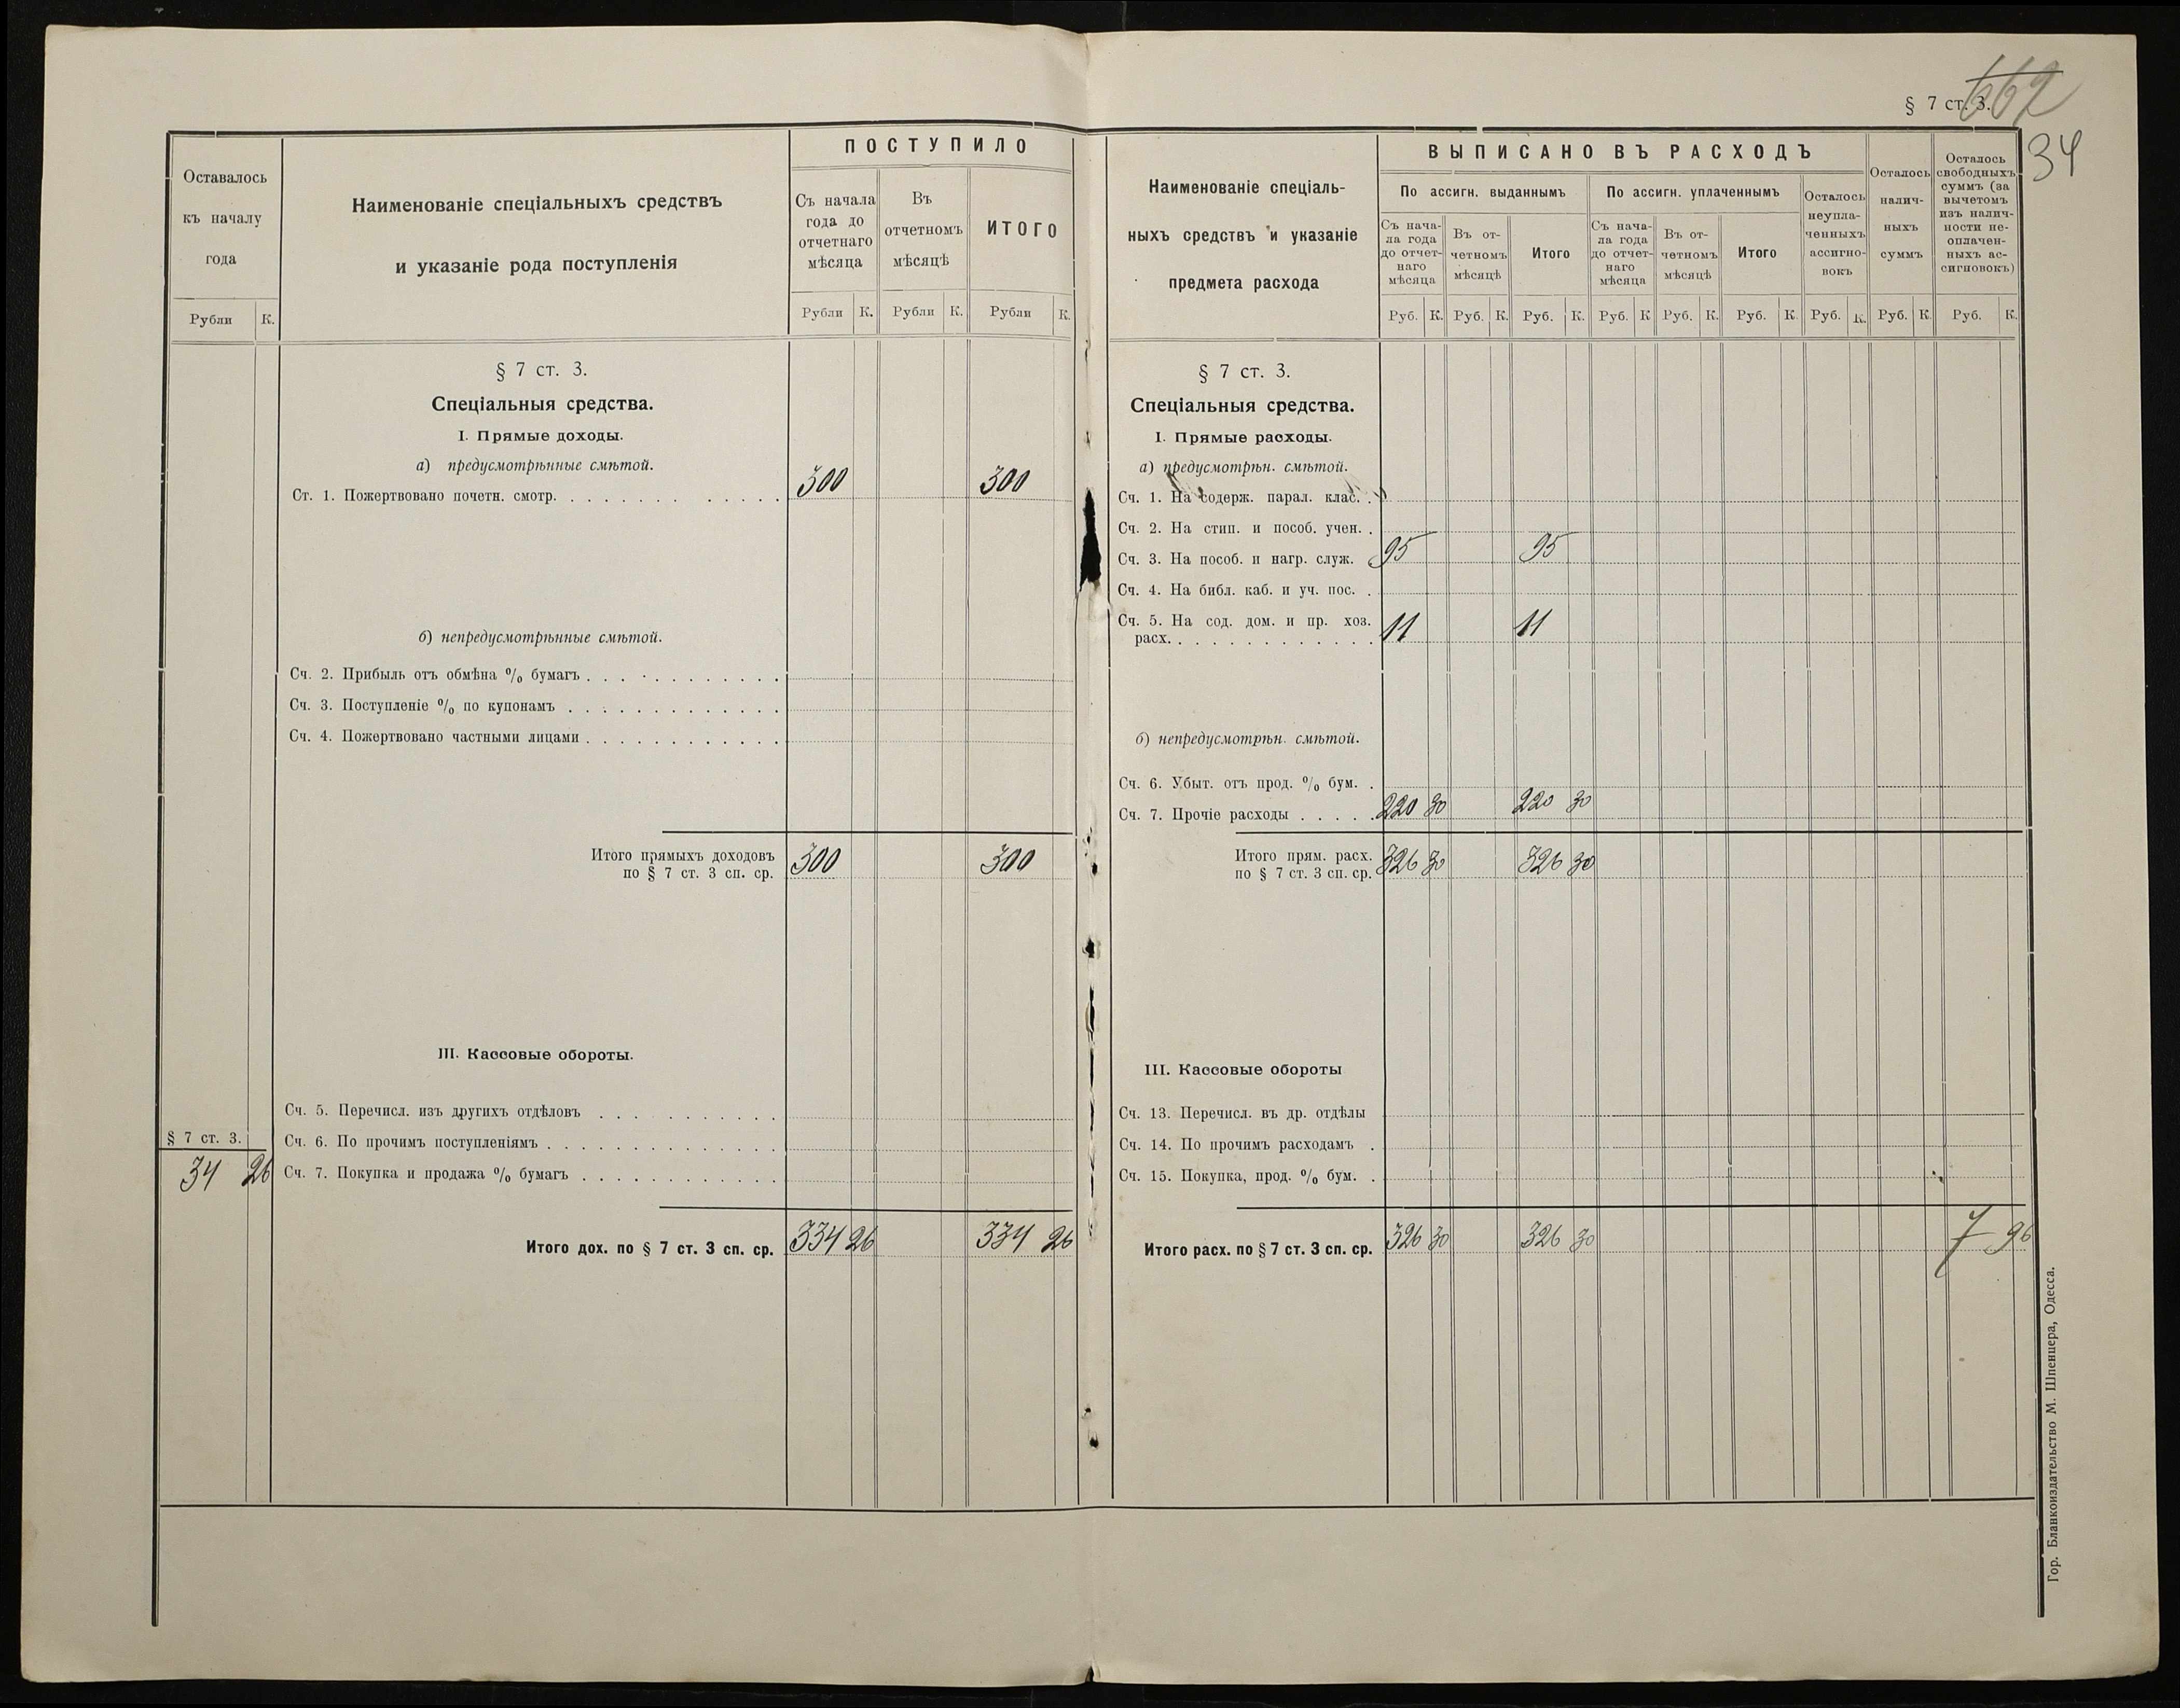 662
§ 7 ст. 3.
34
Оставалось
къ началу
года
Рубли К.
Наименованіе спеціальныхъ средствъ
и указаніе рода поступленія
ПОСТУПИЛО
Съ начала
года до
отчетнаго
мѣсяца
Въ
отчетномъ
мѣсяцѣ
ИТОГО
Рубли К. Рубли К. Рубли К.
§ 7 ст. 3.
Спеціальныя средства.
I. Прямые доходы.
а) предусмотрѣнные смѣтой.
Ст. 1. Пожертвовано почетн. смотр. 300 300
б) непредусмотрѣнные смѣтой.
Сч. 2. Прибыль отъ обмѣна % бумагъ
Сч. 3. Поступленіе % по купонамъ
Сч. 4. Пожертвовано частными лицами
Итого прямыхъ доходовъ
по § 7 ст. 3 сп. ср. 300 300
III. Кассовые обороты.
Сч. 5. Перечисл. изъ другихъ отдѣловъ
§ 7 ст. 3.
Сч. 6. По прочимъ поступленіямъ
34 26
Сч. 7. Покупка и продажа % бумагъ
Итого дох. по § 7 ст. 3 сп. ср. 334 26 334 26
Наименованіе спеціаль-
ныхъ средствъ и указаніе
предмета расхода
ВЫПИСАНО ВЪ РАСХОДЪ
По ассигн. выданнымъ
Съ нача-
ла года
до отчет-
наго
мѣсяца
Въ от-
четномъ
мѣсяцѣ
Итого
По ассигн. уплаченнымъ
Съ нача-
ла года
до отчет-
наго
мѣсяца
Въ от-
четномъ
мѣсяцѣ
Итого
Осталось
неупла-
ченныхъ
ассигно-
вокъ
Осталось
налич-
ныхъ
суммъ
Осталось
свободныхъ
суммъ (за
вычетомъ
изъ налич-
ности не-
оплачен-
ныхъ ас-
сигновокъ)
Руб. К. Руб. К. Руб. К. Руб. К Руб. К. Руб. К. Руб. К. Руб. К. Руб. К.
§ 7 ст. 3.
Спеціальныя средства.
I. Прямые расходы.
а) предусмотрѣн. смѣтой.
Сч. 1. На содерж. парал. клас.
Сч. 2. На стип. и пособ. учен.
Сч. 3. На пособ. и нагр. служ. 95 95
Сч. 4. На библ. каб. и уч. пос.
Сч. 5. На сод. дом. и пр. хоз.
расх. 11 11
б) непредусмотрѣн. смѣтой.
Сч. 6. Убыт. отъ прод. % бум.
Сч. 7. Прочіе расходы 220 30 220 30
Итого прям. расх.
по § 7 ст. 3 сп. ср. 326 30 326 30
III. Кассовые обороты
Сч. 13. Перечисл. въ др. отдѣлы
Сч. 14. По прочимъ расходамъ
Сч. 15. Покупка, прод. % бум.
Итого расх. по § 7 ст. 3 сп. ср. 326 30 326 30 7 96
Гор. Бланкоиздательство М. Шпенцера, Одесса.